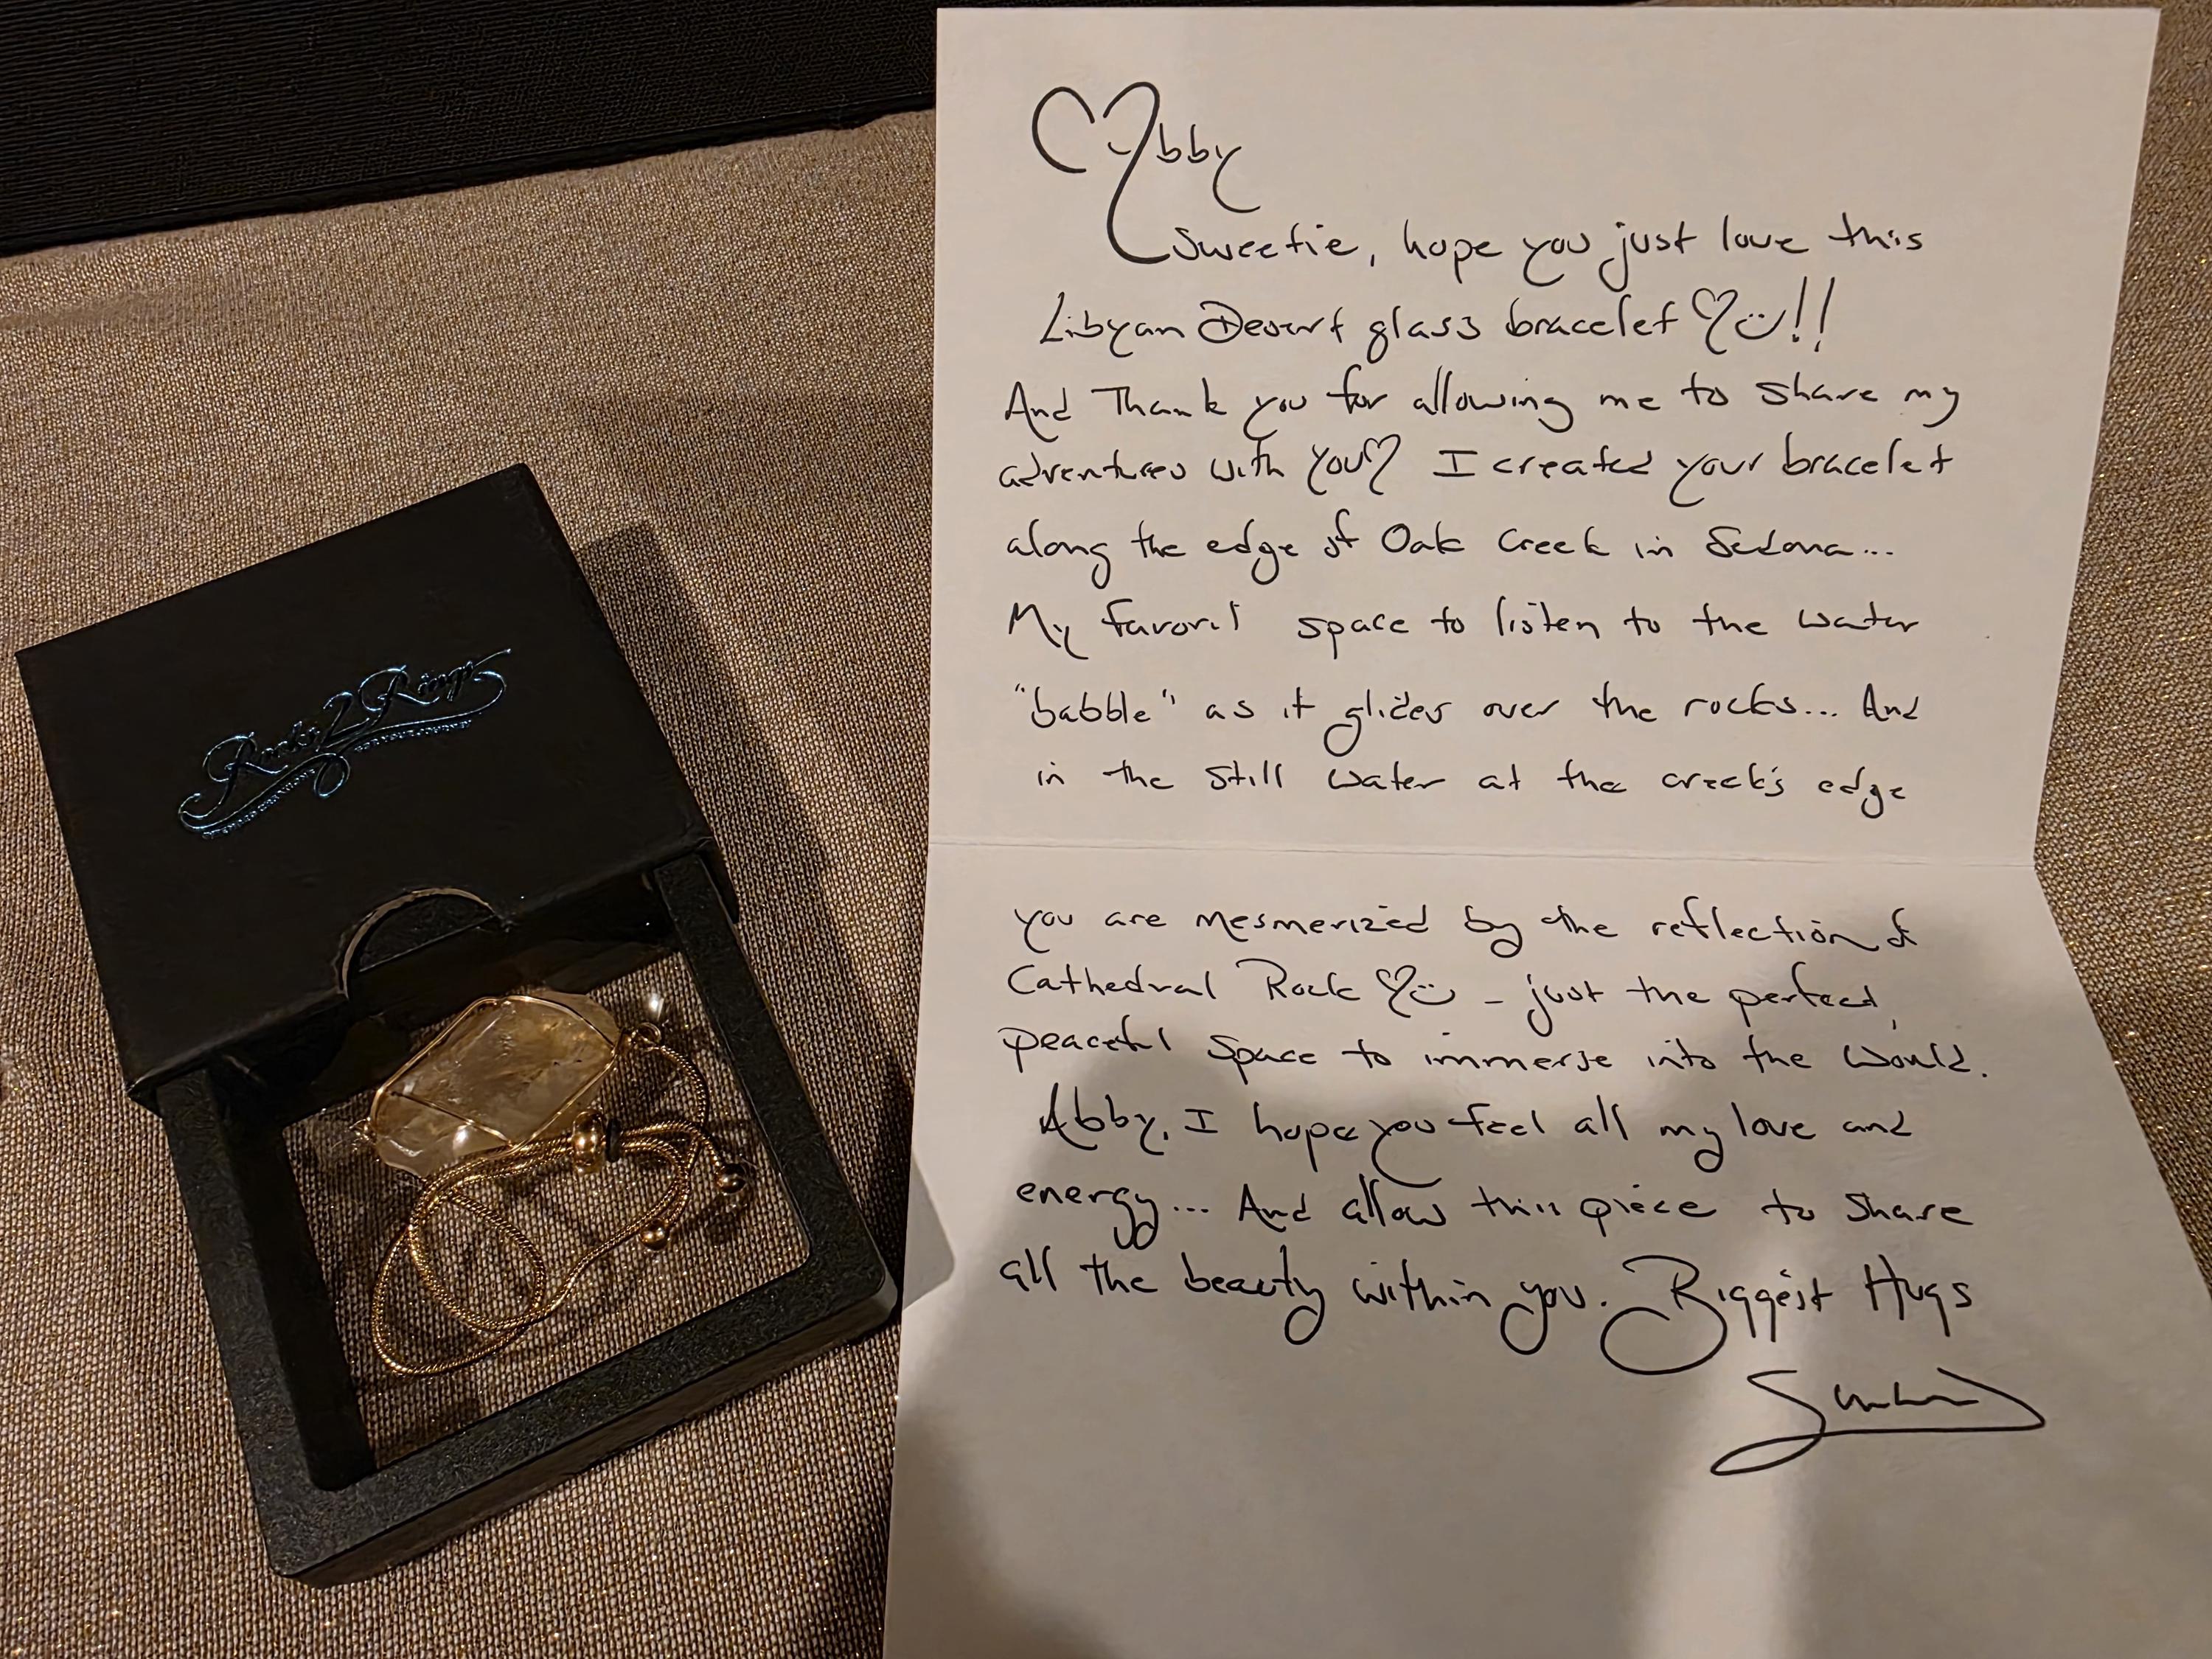 Rocks2Rings
Abby
Sweetie, hope you just love this
Libyan Desert glass bracelet ♡☺!!
And Thank you for allowing me to share my
adventures with you♡ I created your bracelet
along the edge of Oak Creek in Sedona...
My favorit space to listen to the water
"babble" as it glides over the rocks... And
in the still water at the creek's edge
you are mesmerized by the reflection of
Cathedral Rock ♡☺ - just the perfect,
peaceful space to immerse into the would.
Abby, I hope you feel all my love and
energy... And allow this piece to share
all the beauty within you. Biggest Hugs